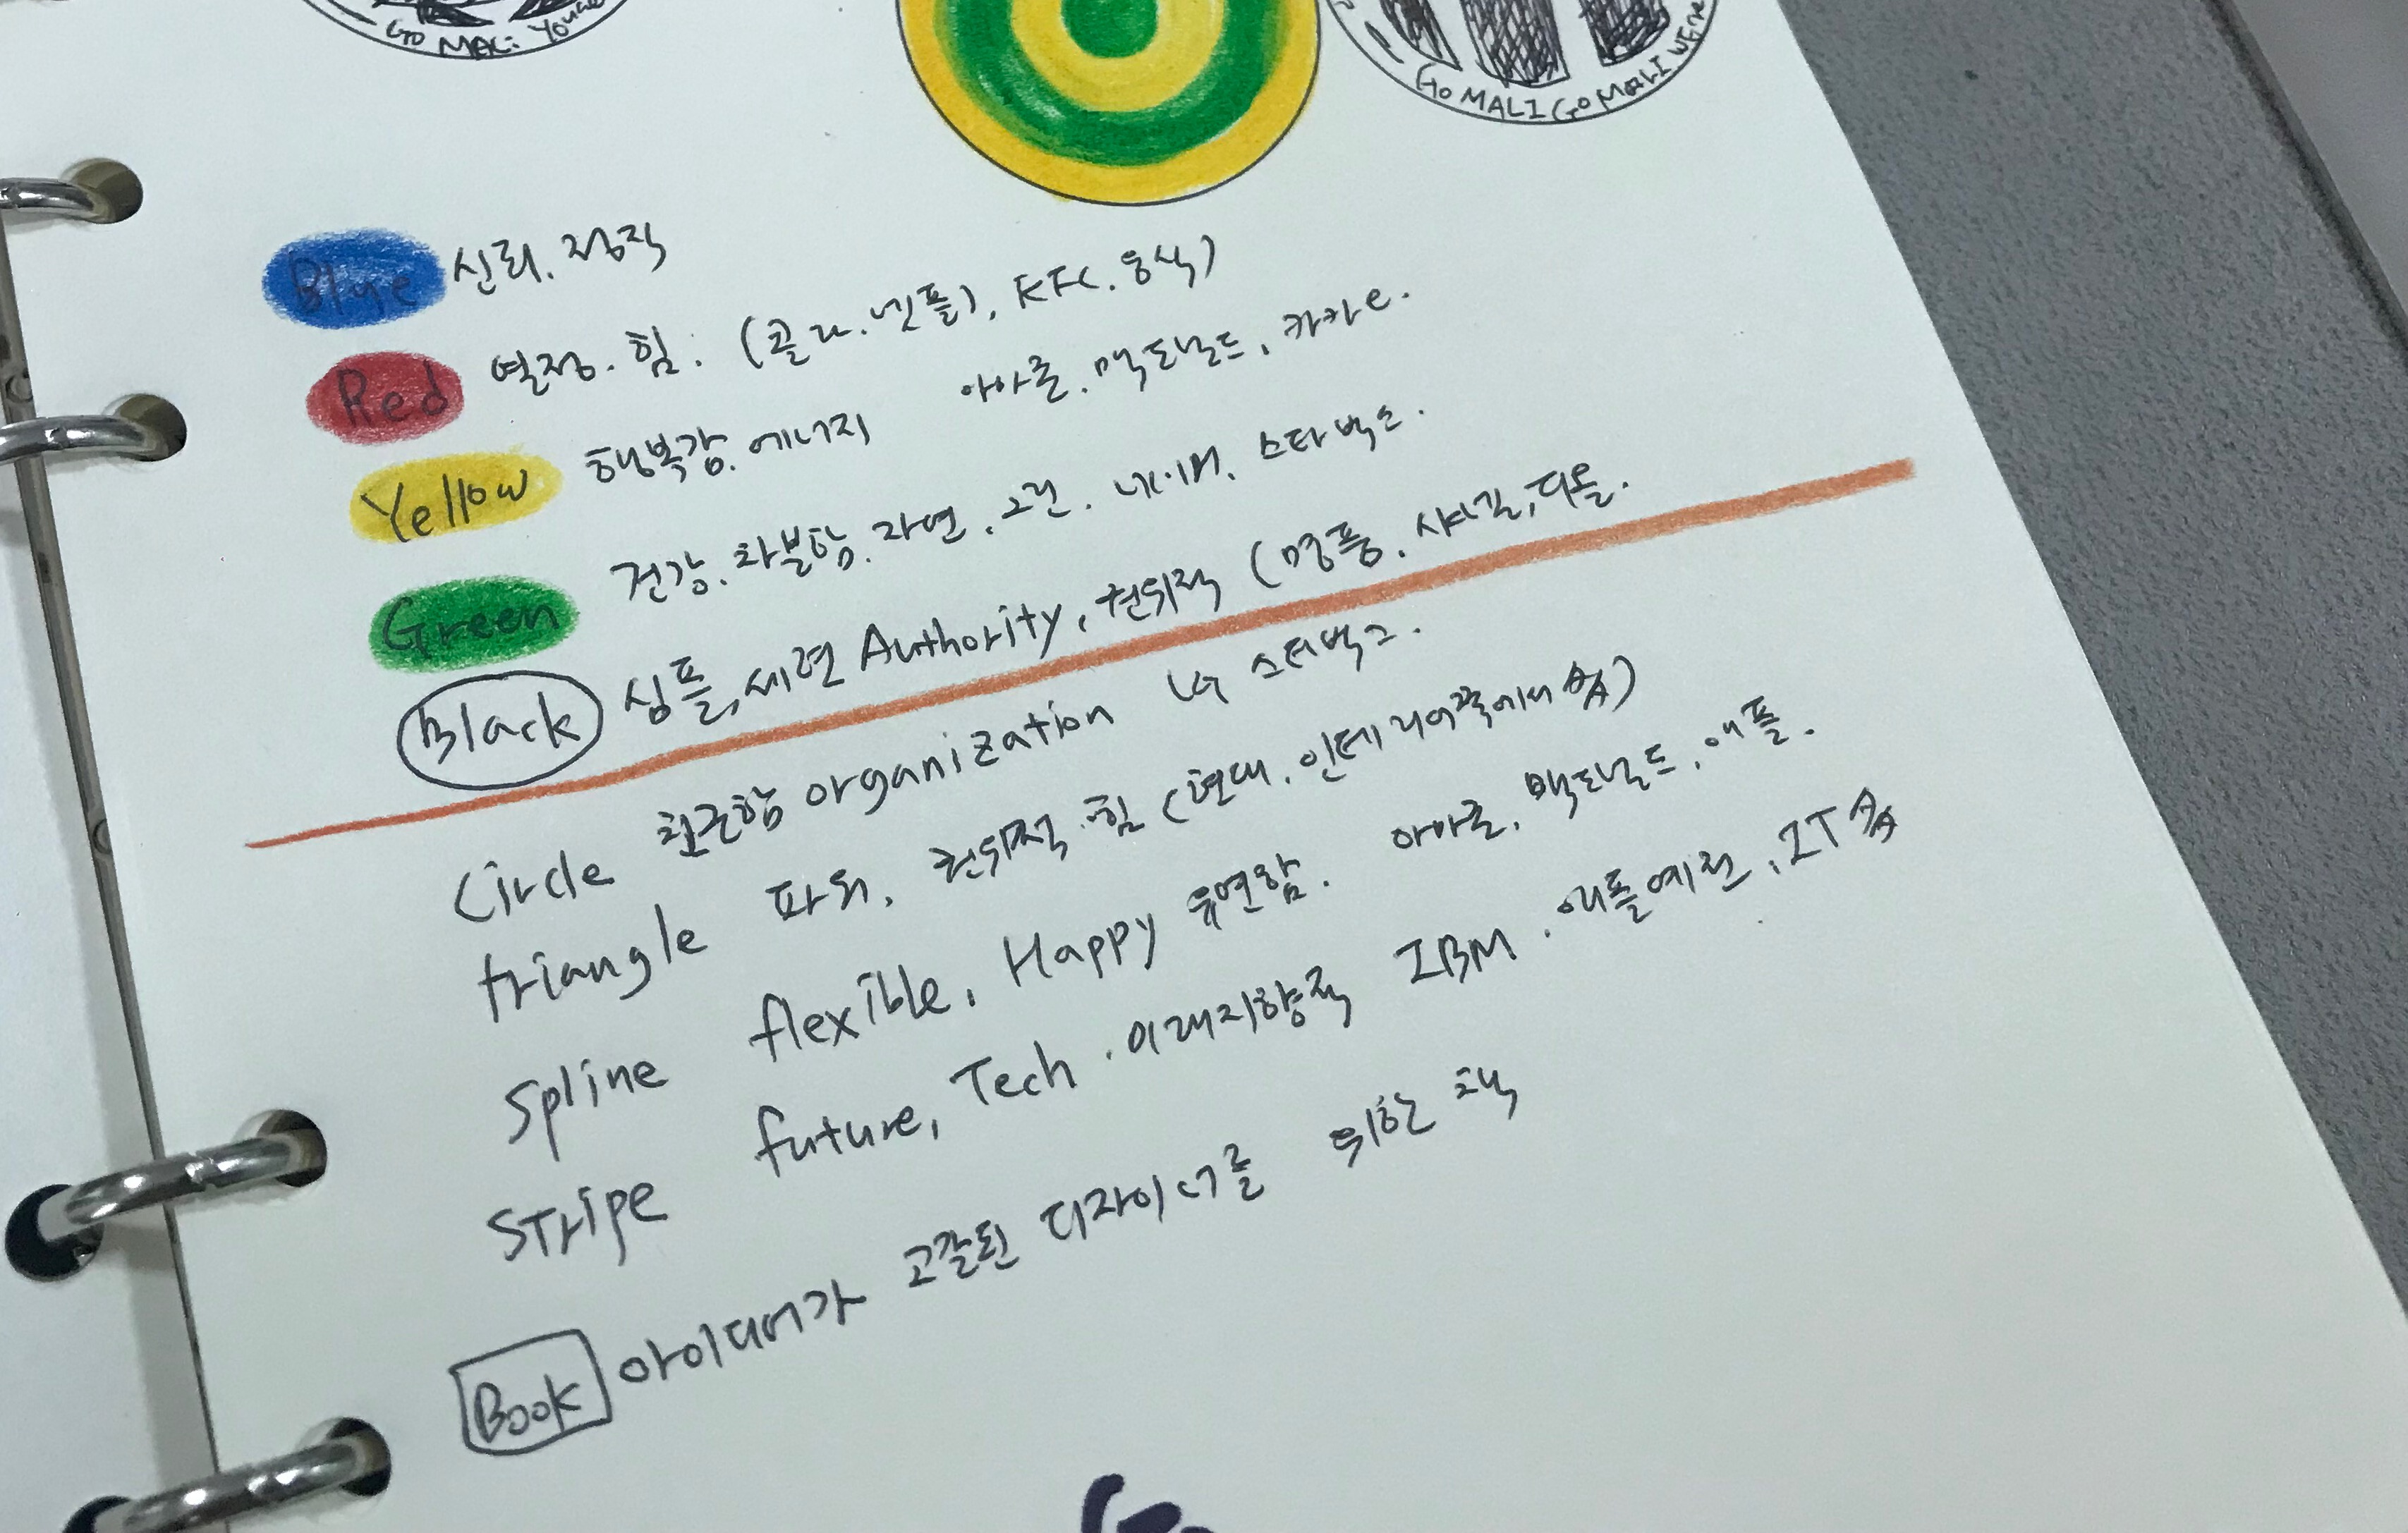 GO MALI YOU
GO MALI GO MALI WE'RE
Blue 신뢰. 정직
Red 열정. 힘. (콜라. 넷플), KFC. 음식)
Yellow 행복감. 에너지 아마존. 맥도날드, 카카오.
Green 건강. 차분함. 자연. 그린. 네이버. 스타벅스.
Black 심플, 세련 Authority, 권위적 (명품. 샤넬, 디올.
Circle 친근함 organization LG 스타벅스.
triangle 파워, 권위적. 힘 (현대. 인테리어쪽에서 多)
Spline flexible, Happy 유연함. 아마존, 맥도날드, 애플.
STripe future, Tech. 미래지향적 IBM. 애플예전, IT 多
Book 아이디어가 고갈된 디자이너를 위한 책